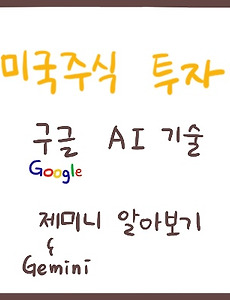 미국주식 투자
구글 AI 기술
Google
제미니 알아보기
&
Gemini